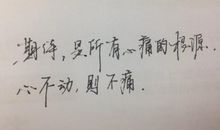 期待，是所有心痛的根源.
心不动，则不痛.